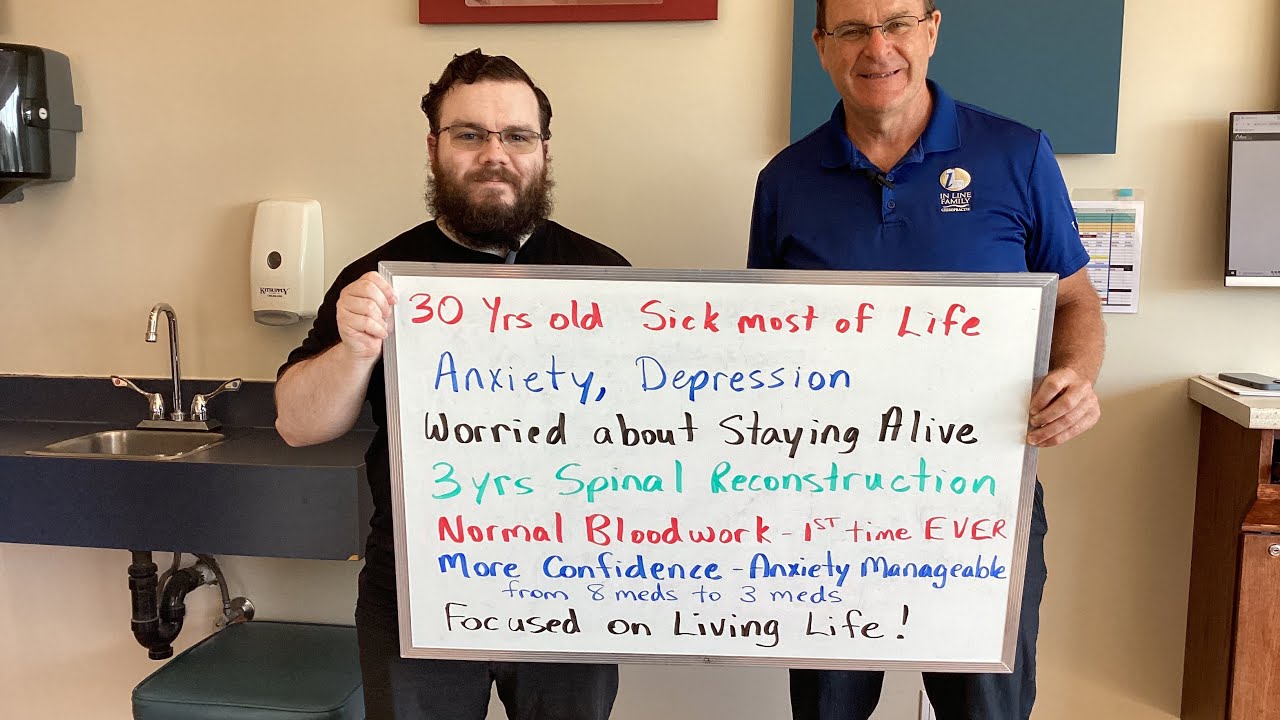 30 Yrs old Sick most of Life
Anxiety, Depression
Worried about Staying Alive
3 yrs Spinal Reconstruction
Normal Bloodwork - 1ST time EVER
More Confidence - Anxiety Manageable
from 8 meds to 3 meds
Focused on Living Life!
IN LINE
FAMILY
CHIROPRACTIC
KITSUPPLY